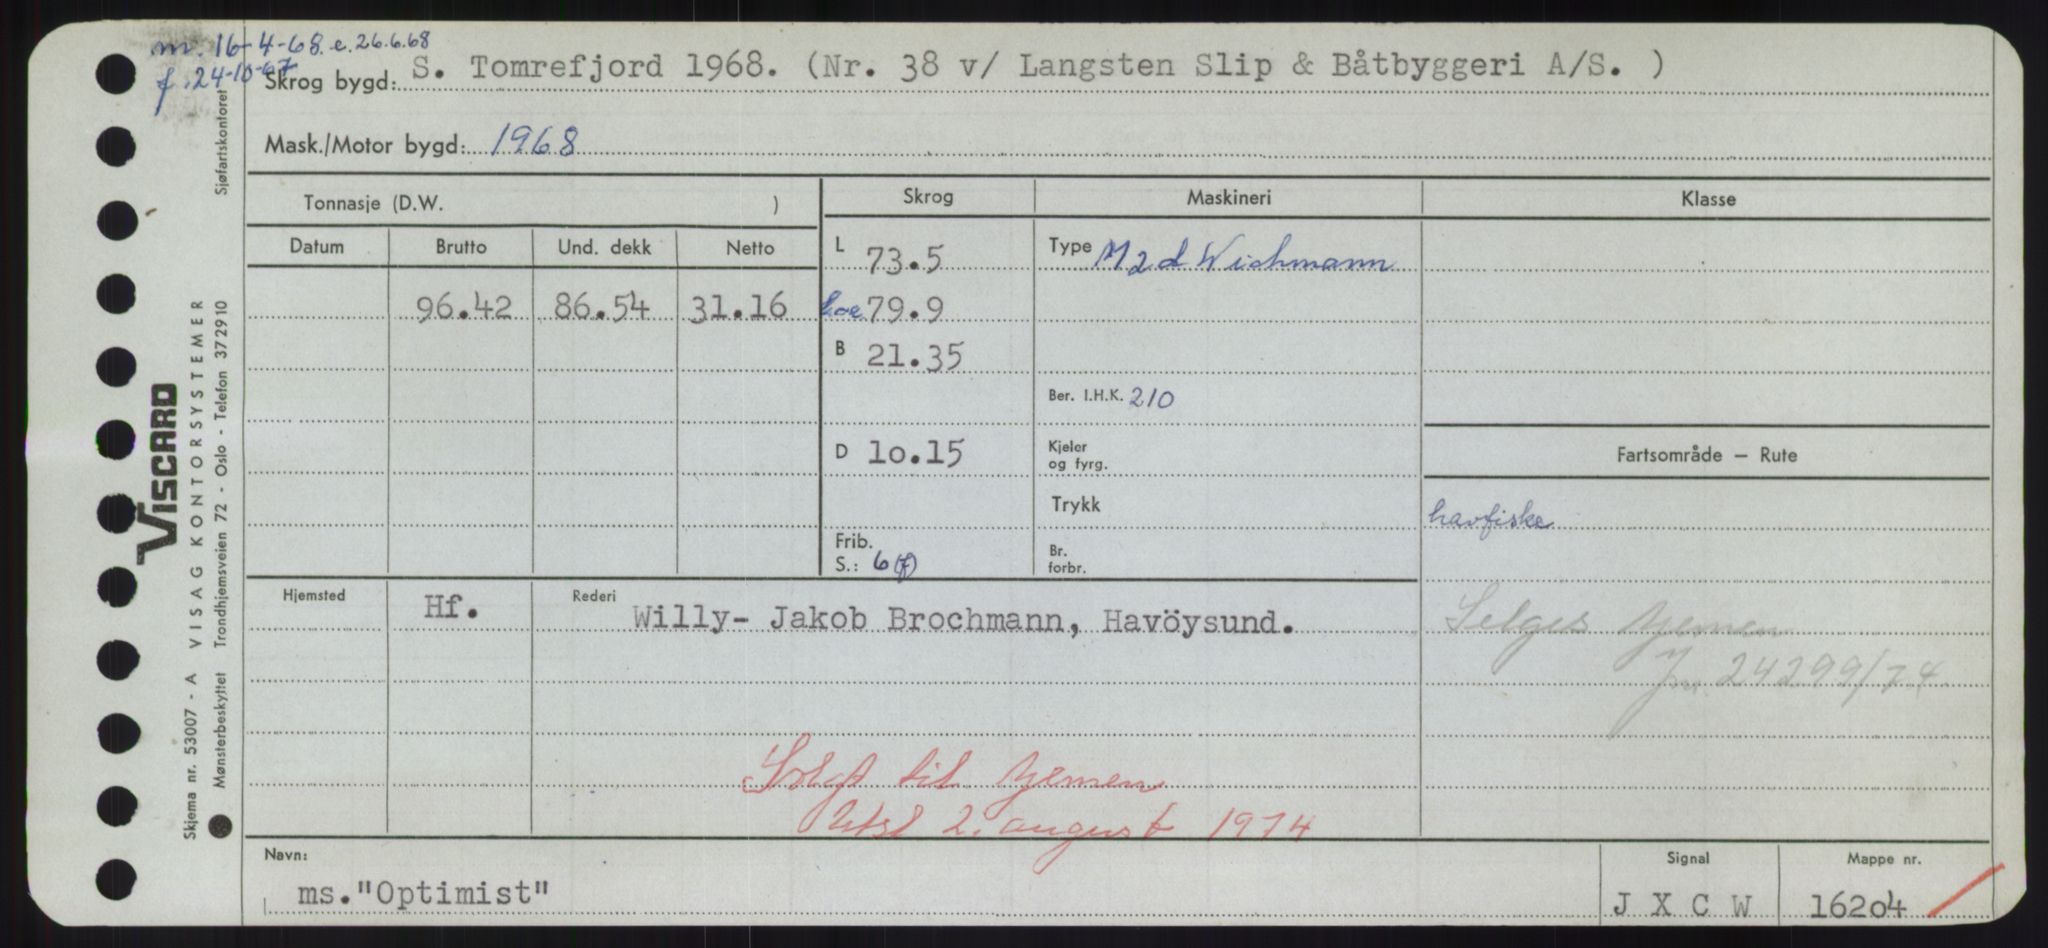 m. 16-4-68. e. 26.6.68
f. 24-10-67
Skrog bygd: S. Tomrefjord 1968. (Nr. 38 v/ Langsten Slip & Båtbyggeri A/S. )
Mask./Motor bygd: 1968
Sjøfartskontoret
Tonnasje (D.W. )
Skrog
Maskineri
Klasse
Datum
Brutto
Und. dekk
Netto
L 73.5
Type M 2 d Wichmann
96.42 86.54 31.16
Loa 79.9
B 21.35
Ber. I.H.K. 210
D 10.15
Kjeler
og fyrg.
Fartsområde – Rute
Trykk
havfiske
Frib.
S.: 6 (f)
Br.
forbr.
Hjemsted
Hf.
Rederi
Willy- Jakob Brochmann, Havöysund.
Selges Yemen
Jnr. 24299/74.
Solgt til Yemen
Utsl 2. august 1974
Navn:
ms. "Optimist"
Signal
J X C W
Mappe nr.
16204
VISCARD
VISAG KONTORSYSTEMER
Skjema nr. 53007 - A
Trondhjemsveien 72 - Oslo - Telefon 372910
Mønsterbeskyttet